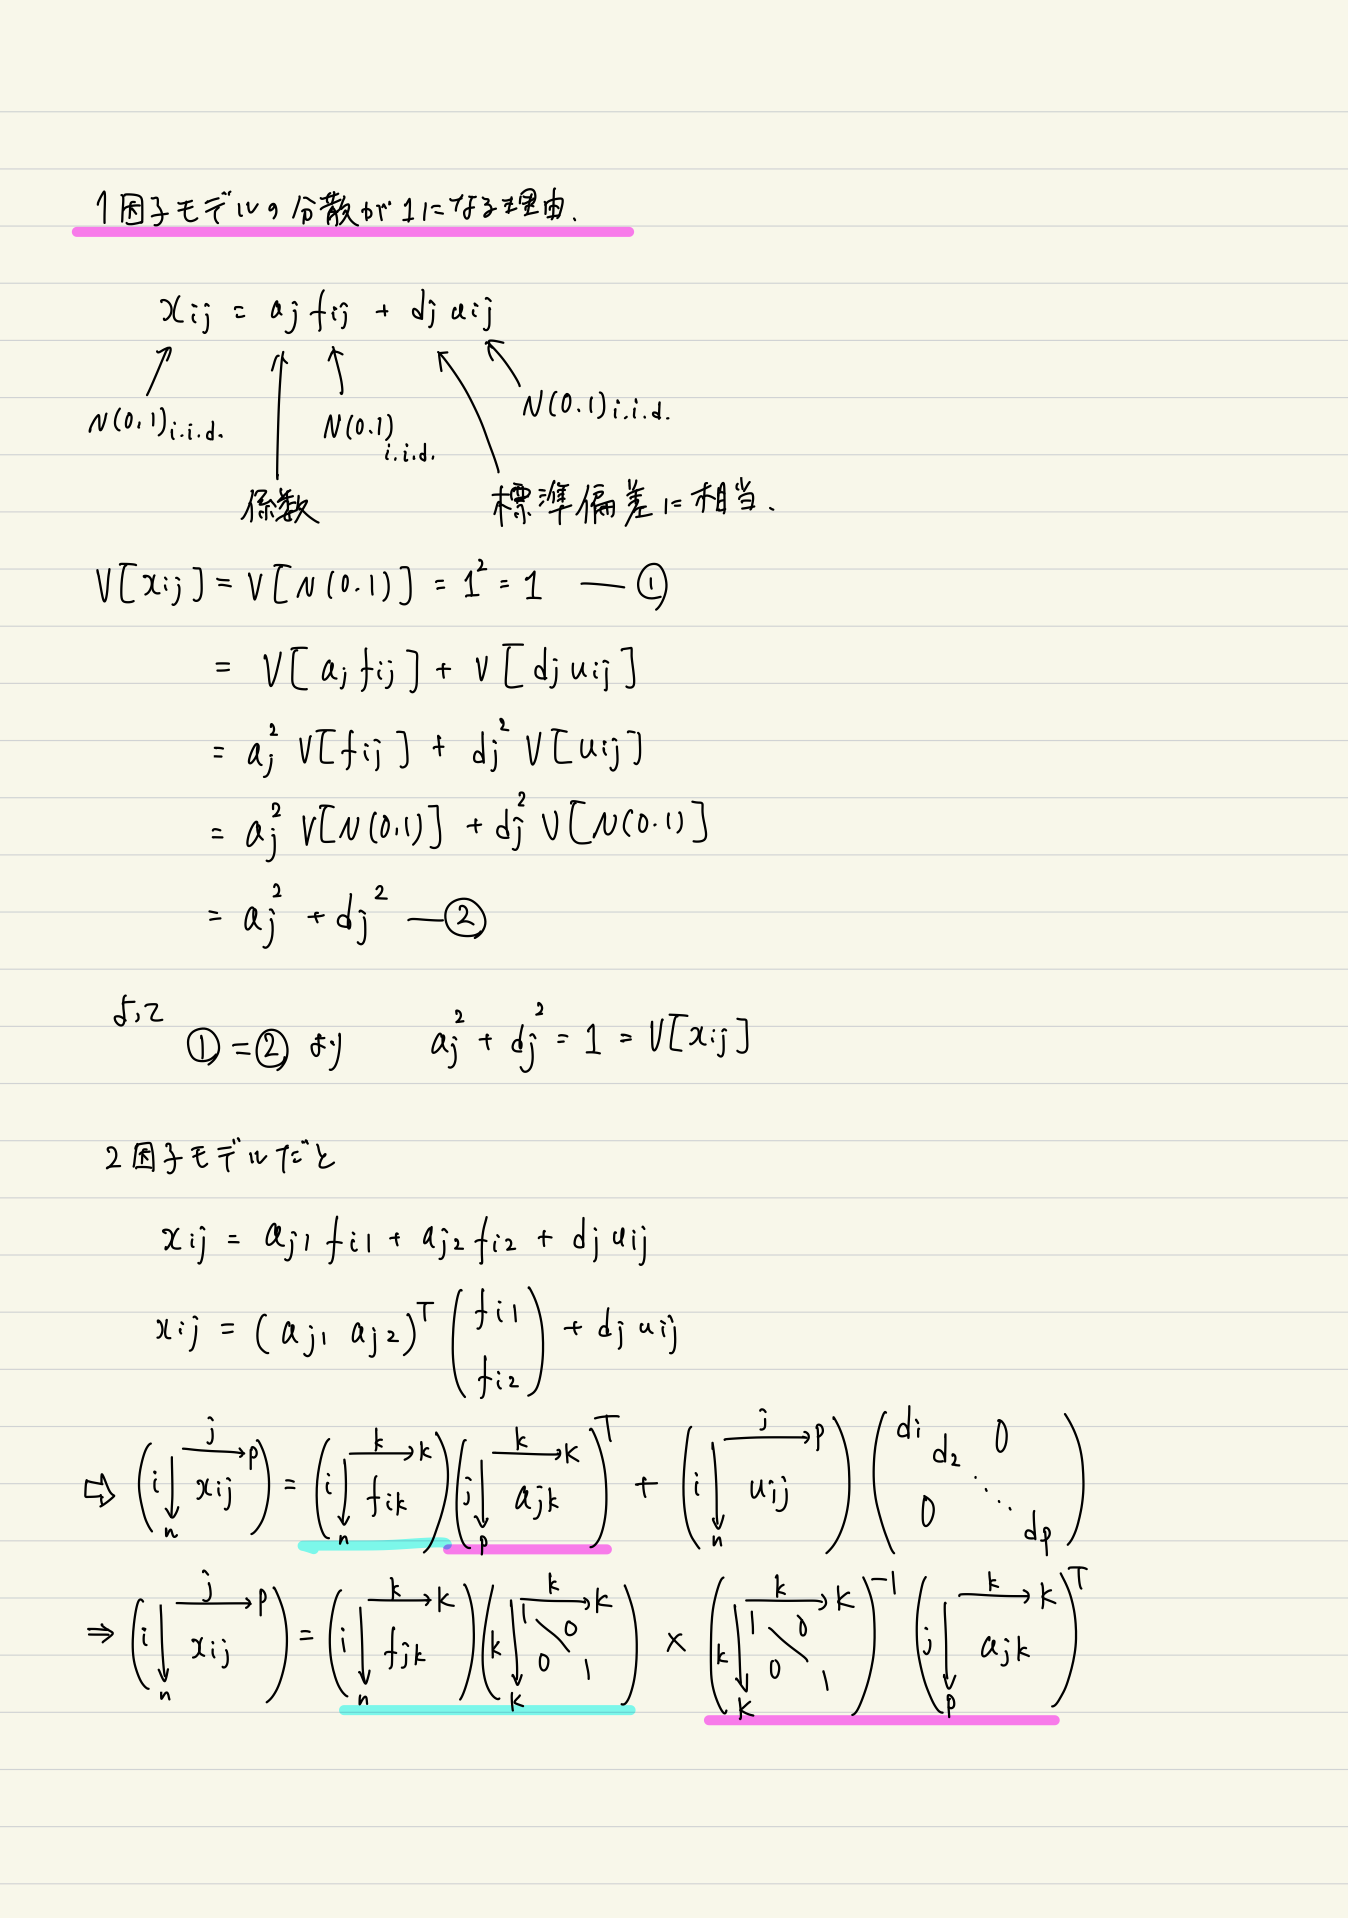 1因子モデルの分散が1になる理由.
xij = aj fij + dj uij
N(0.1)i.i.d. N(0.1)i.i.d. N(0.1)i.i.d.
係数 標準偏差に相当.
V[xij] = V[N(0.1)] = 1² = 1 — ①
= V[aj fij] + V[dj uij]
= aj² V[fij] + dj² V[uij]
= aj² V[N(0.1)] + dj² V[N(0.1)]
= aj² + dj² — ②
よって
①=② より aj² + dj² = 1 = V[xij]
2因子モデルだと
xij = aj1 fi1 + aj2 fi2 + dj uij
xij = (aj1 aj2)ᵀ (fi1 fi2) + dj uij
⇨ (i↓n j→p xij) = (i↓n k→K fik)(j↓p k→K ajk)ᵀ + (i↓n j→p uij)(di d2 0 ⋱ 0 dp)
⇒ (i↓n j→p xij) = (i↓n k→K fjk)(k↓K k→K 1 0 0 1) × (k↓K k→K 1 0 0 1)⁻¹ (j↓p k→K ajk)ᵀ